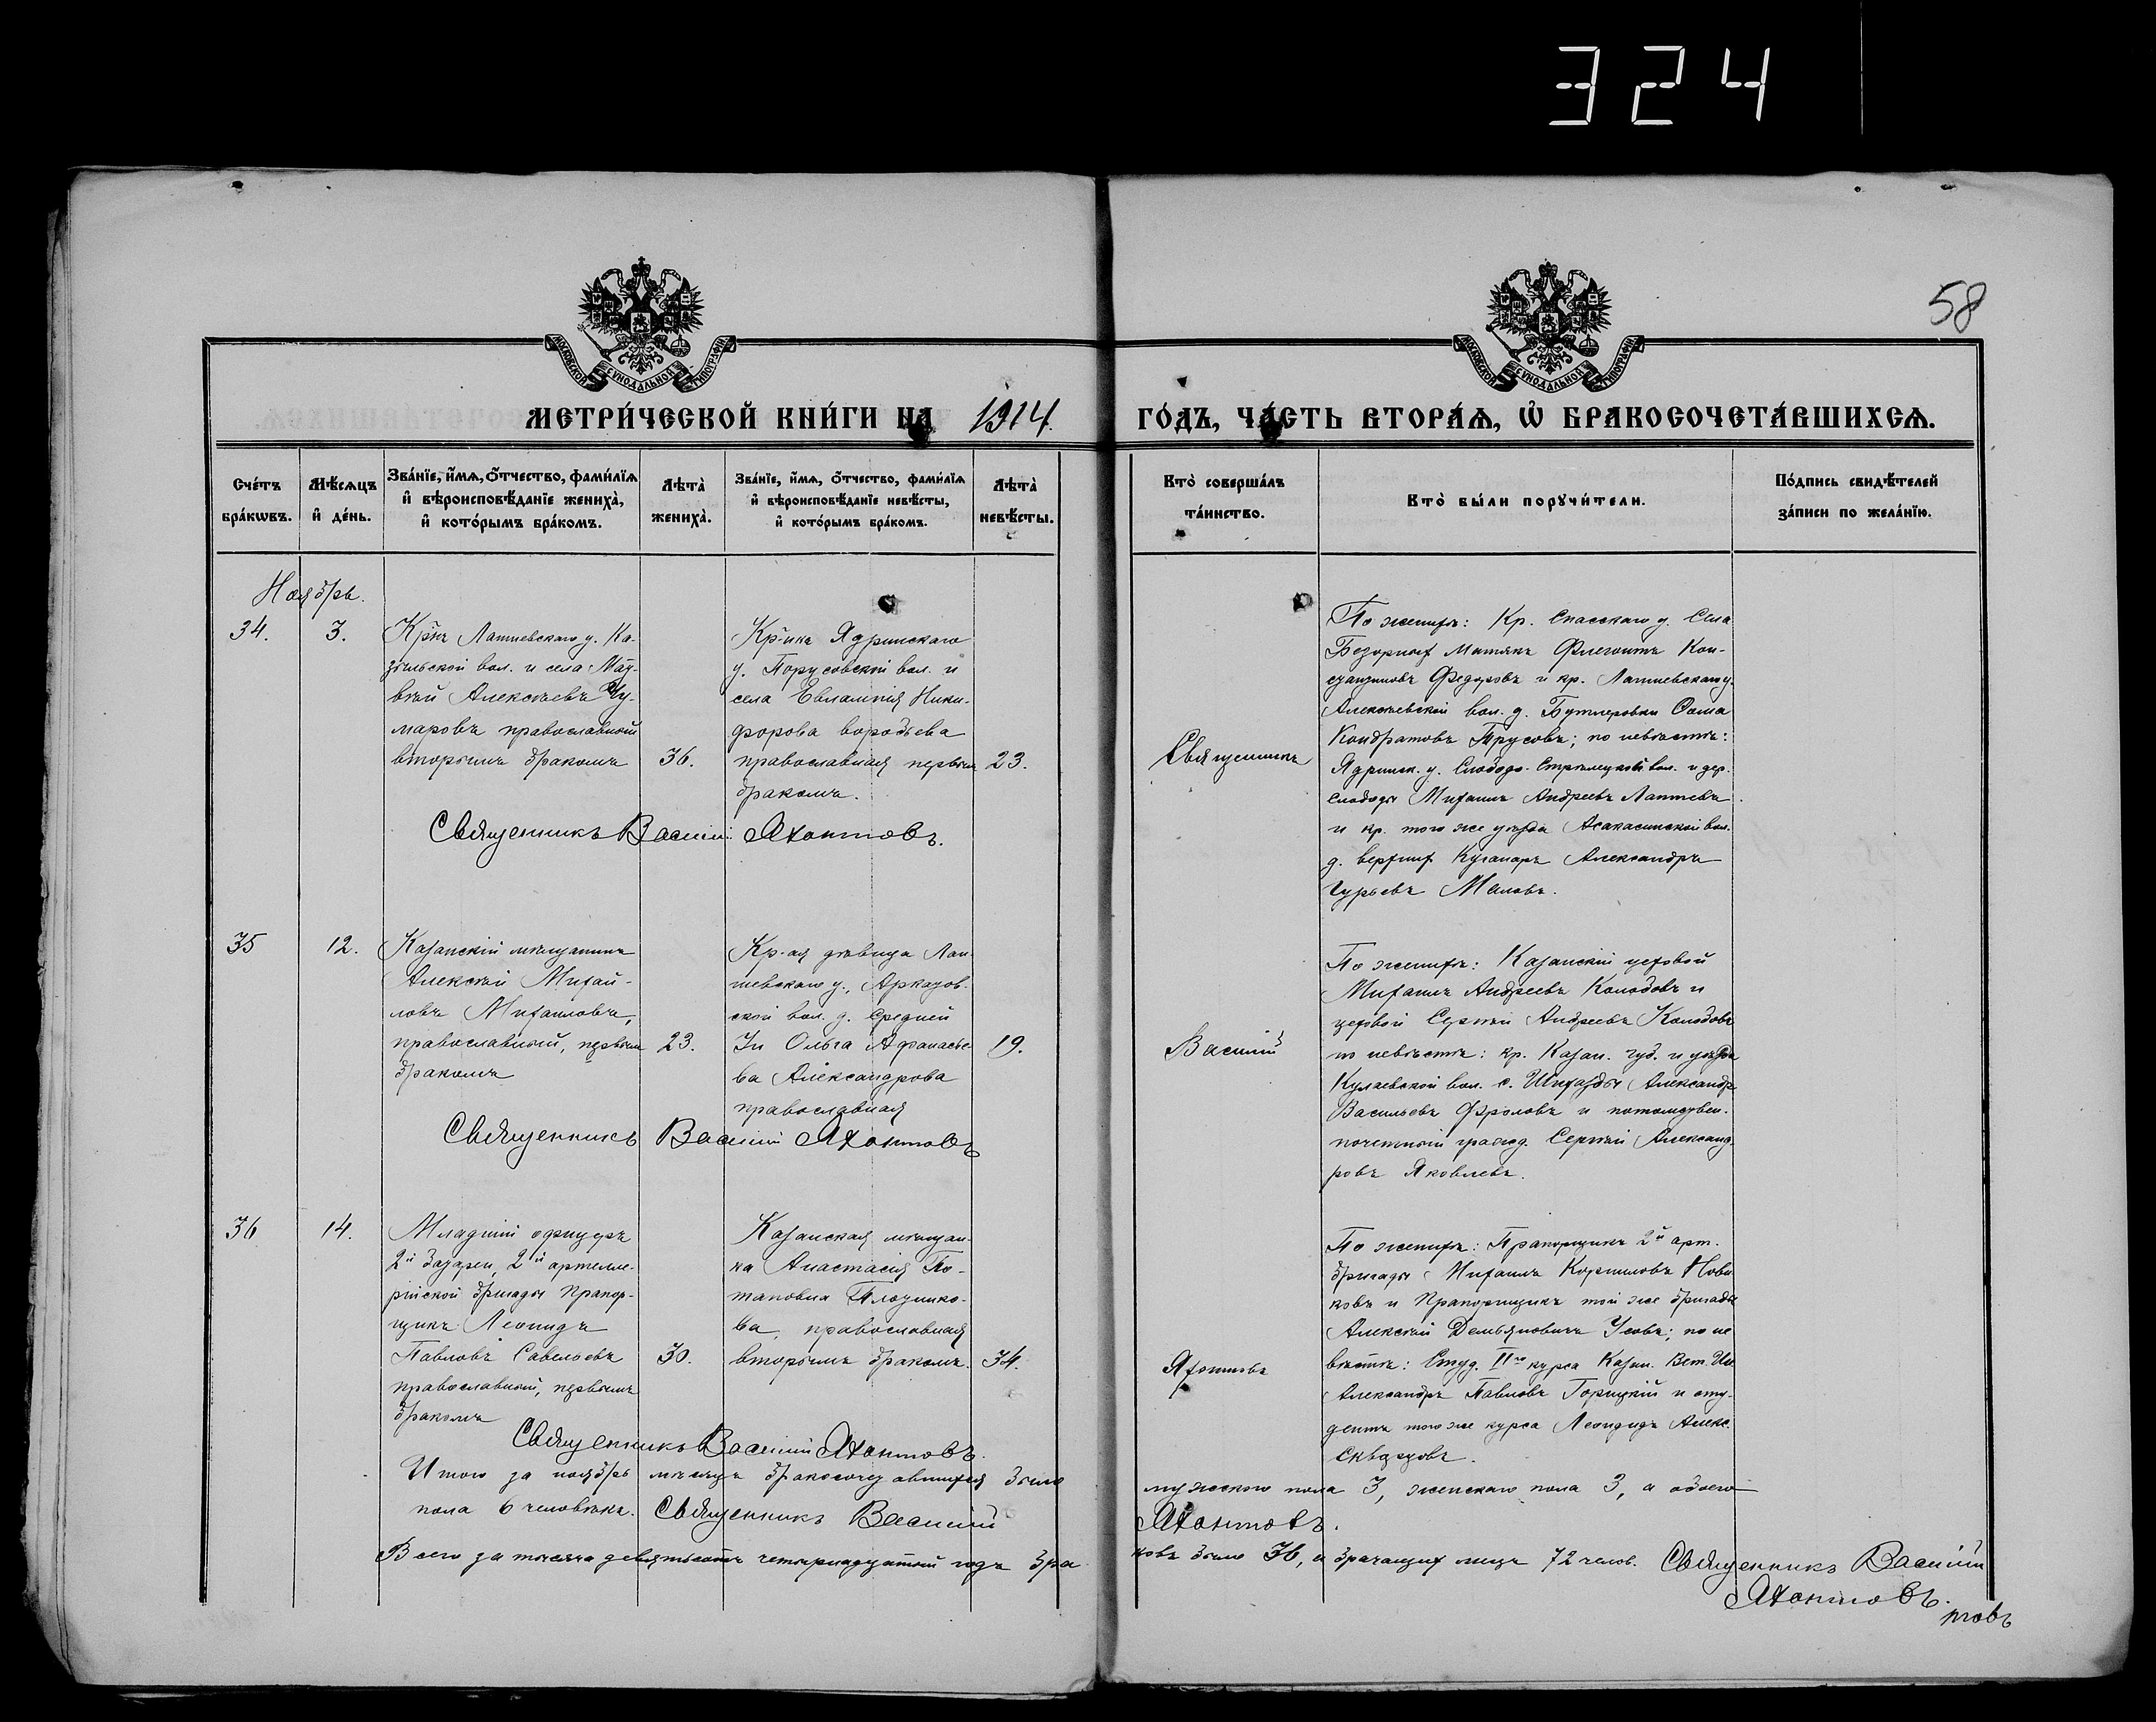 324
58
МОСКОВСКОЙ СѴНОДАЛЬНОЙ ТИПОГРАФІИ
МОСКОВСКОЙ СѴНОДАЛЬНОЙ ТИПОГРАФІИ
МЕТРИ́ЧЕСКОЙ КНИ́ГИ НА 1914. ГО́ДЪ, ЧА́СТЬ ВТОРА́Ѧ, Ѡ҆ БРАКОСОЧЕТА́ВШИХСѦ.
Сче́тъ бра́кѡвъ.
Мѣ́сѧцъ и҆ де́нь.
Зва́нїе, и҆́мѧ, о҆́тчество, фами́лїѧ
и҆ вѣроисповѣ́данїе жениха̀,
и҆ кото́рымъ бра́комъ.
Лѣта̀ жениха̀.
Зва́нїе, и҆́мѧ, о҆́тчество, фами́лїѧ
и҆ вѣроисповѣ́данїе невѣ́сты,
и҆ кото́рымъ бра́комъ.
Лѣта̀ невѣ́сты.
Кто̀ соверша́лъ
та́инство.
Кто̀ бы́ли порꙋчи́тели.
По́дпись свидѣ́телей
за́писи по жела́нїю.
Ноябрь.
34.
3.
Кр-нъ Лаишевскаго у. Ка-
зыльской вол. и села Мат-
вѣй Алексѣевъ Чу-
маровъ православный
вторымъ бракомъ
36.
Кр-нка Ядринскаго
у. Торусовской вол. и
села Евлампія Ники-
форова Воробьева
православная первым
бракомъ.
23.
Священникъ Василій Яхонтовъ.
Священникъ
По женихѣ: Кр. Спасскаго у. Села
Бездорных Матакъ Флегонтъ Кон-
стантиновъ Федоровъ и кр. Лаишевскаго у.
Алексѣевской вол. д. Бутлеровки Сама
Кондратовъ Трусовъ; по невѣстѣ:
Ядринск. у. Слободо-Стрѣлецкой вол. и дер.
слободы Михаилъ Андреевъ Лаптевъ
и кр. того же уѣзда Асакасинской вол.
д. верхних Кугалоръ Александръ
Гурьевъ Маловъ.
35
12.
Казанскій мѣщанинъ
Алексѣй Михай-
ловъ Михаиловъ,
православный, первым
бракомъ
23.
Кр-ая дѣвица Лаи-
шевскаго у., Аркатов-
ской вол. д. Средней
Ін Ольга Афанасье-
ва Александрова
православная
19.
Священникъ Василій Яхонтовъ
Василій
По женихѣ: Казанскій цеховой
Михаилъ Андреевъ Колодовъ и
цеховой Сергѣй Андреевъ Колодовъ
по невѣстѣ: кр. Казан. губ. и уѣзда
Кулаевской вол. с. Шигазды Александръ
Васильевъ Фроловъ и потомствен.
почетный гражд. Сергѣй Александ-
ровъ Яковлевъ.
36
14.
Младшій офицеръ
2й батареи, 2й артелле-
рійской бригады Прапор-
щикъ Леонидъ
Павловъ Савельевъ
православный, первымъ
бракомъ
30.
Казанская мѣщан-
ка Анастасія По-
таповна Плотнико-
ва, православная
вторымъ бракомъ.
34.
Священникъ Василій Яхонтовъ.
Яхонтовъ
По женихѣ: Прапорщикъ 2й арт.
бригады Михаилъ Корниловъ Нови
ковъ и Прапорщикъ той же бригады
Алексѣй Демьяновичъ Усовъ; по не
вѣстѣ: Студ. IIго курса Казан. Вет. Ин
Александръ Павловъ Горицкій и сту-
дентъ того же курса Леонидъ Алекс.
Скворцовъ.
Итого за ноябрь мѣсяцъ бракосочетавшихся было мужского пола 3, женскаго пола 3, а обоего
пола 6 человѣкъ. Священникъ Василій Яхонтовъ.
Всего за тысяча девятьсотъ четырнадцатый годъ бра ковъ было 36, а брачащих лицъ 72 челов. Священникъ Василій
Яхонтовъ.
товъ